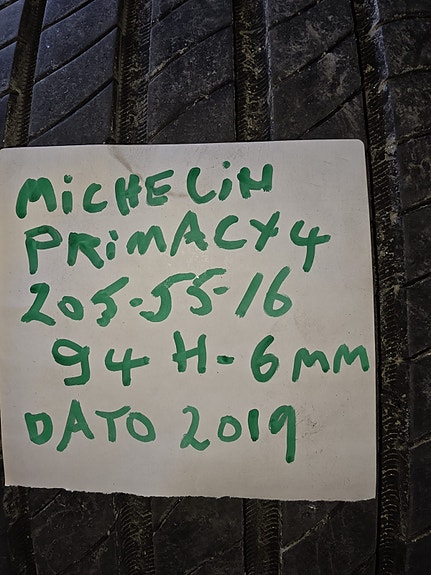 MiCHELiN
PRiMACY 4
205-55-16
94 H-6MM
DATO 2019